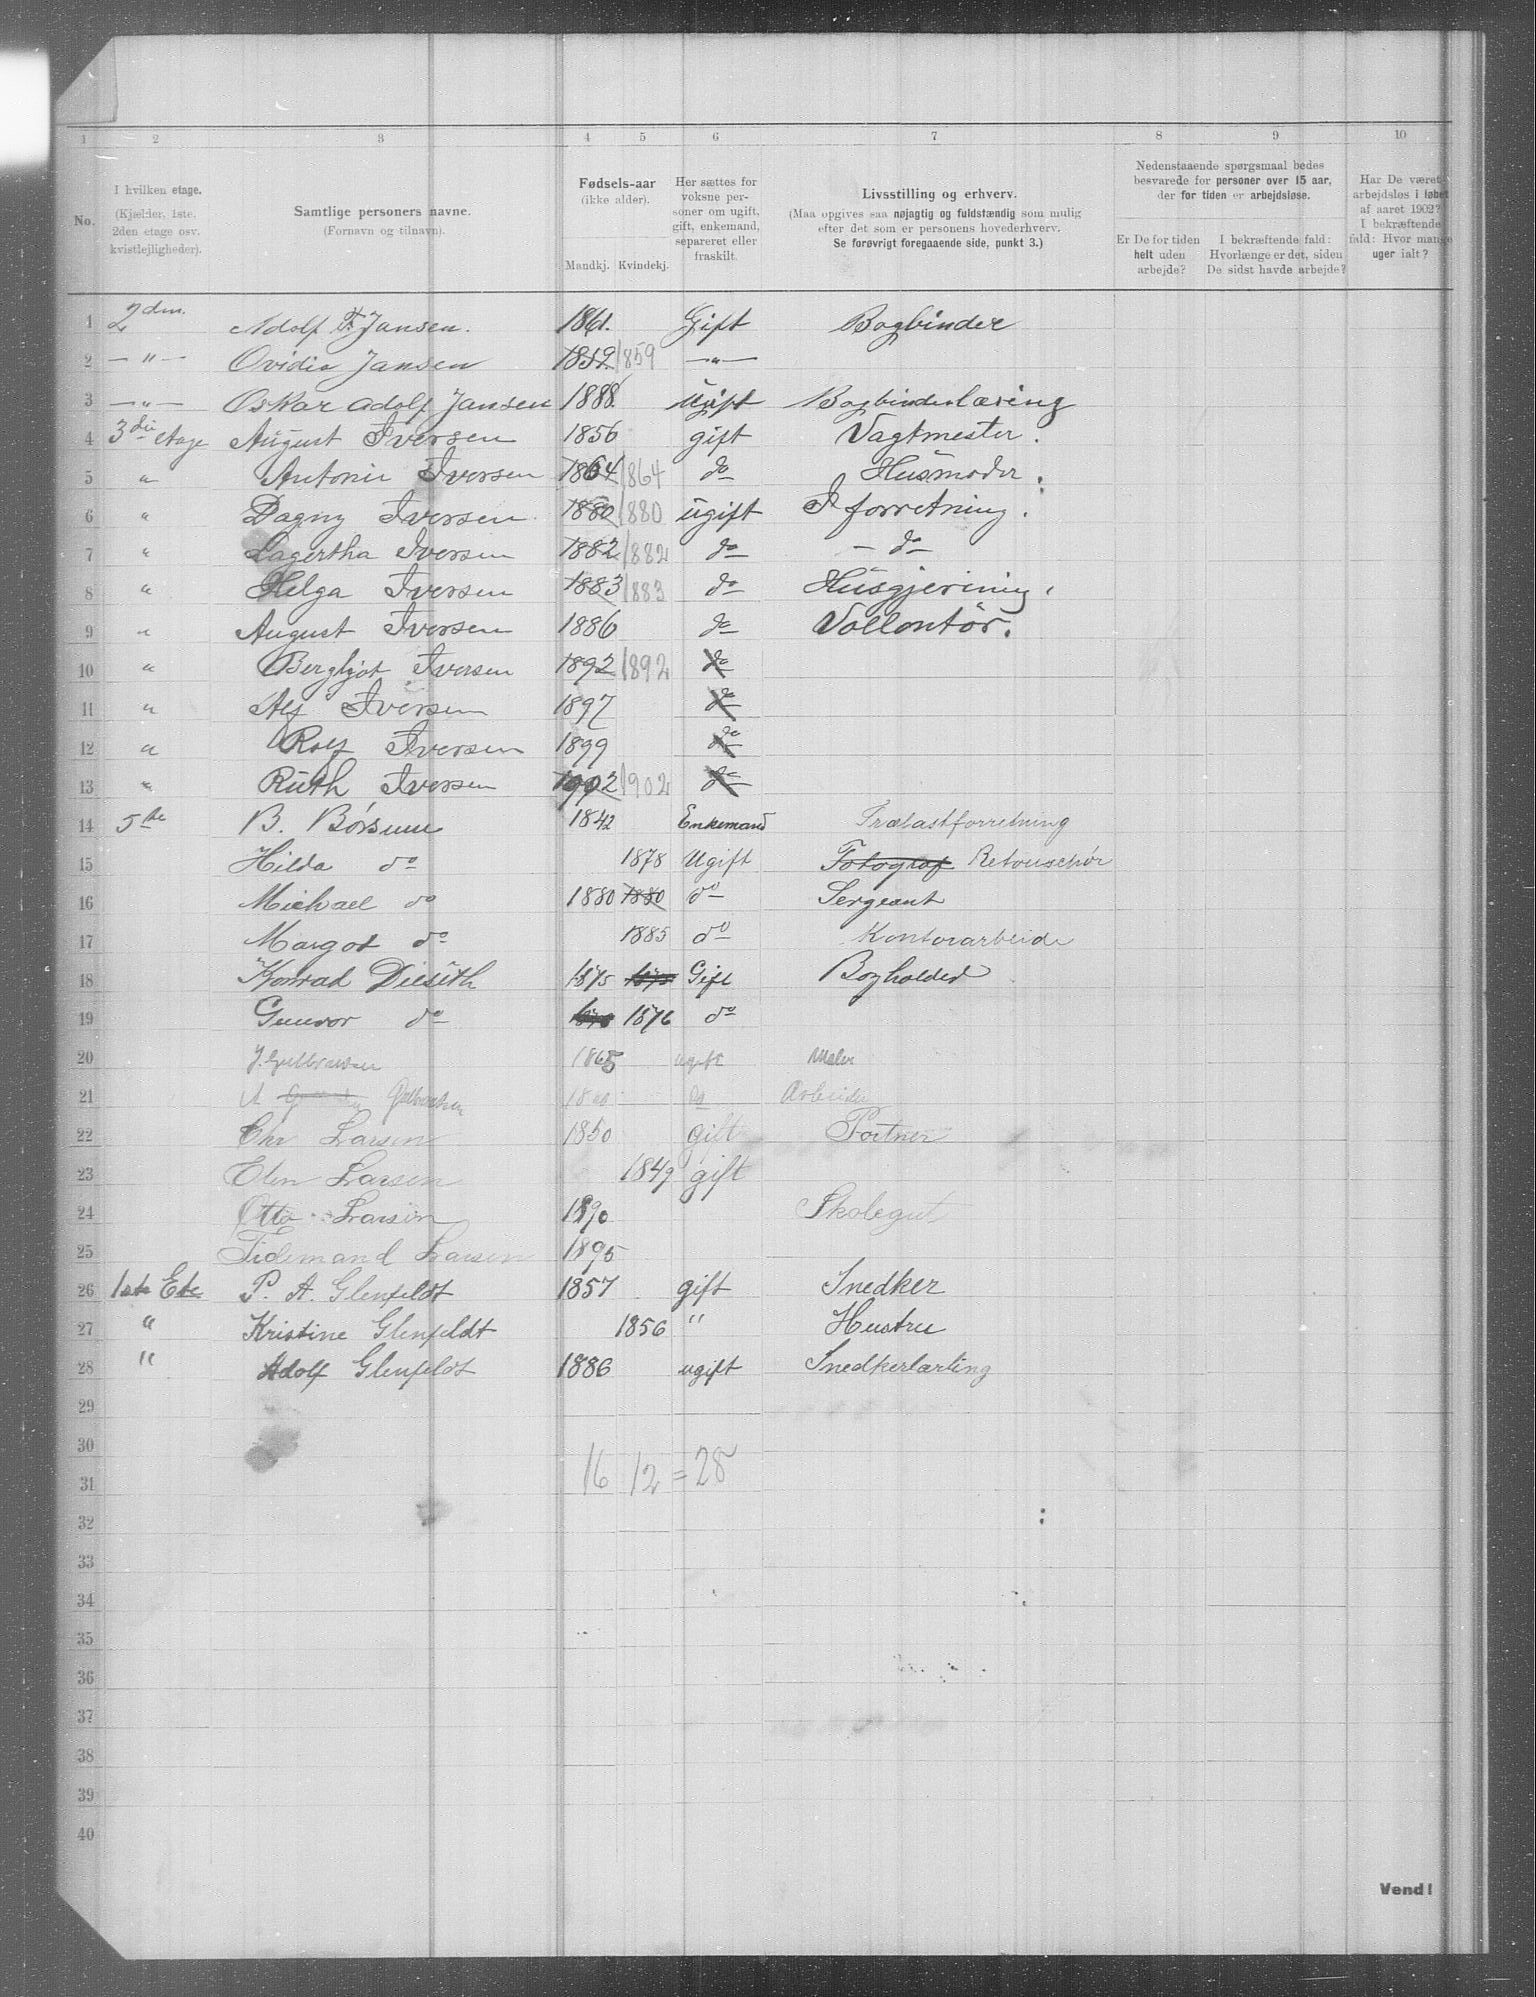 1 2 3 4 5 6 7 8 9 10
No.
I hvilken etage. (Kjælder, 1ste. 2den etage osv. kvistlejligheder).
Samtlige personers navne. (Fornavn og tilnavn).
Fødsels-aar (ikke alder). Mandkj. Kvindekj.
Her sættes for voksne per-soner om ugift, gift, enkemand, separeret eller fraskilt.
Livsstilling og erhverv. (Maa opgives saa nøjagtig og fuldstændig som mulig efter det som er personens hovederhverv. Se forøvrigt foregaaende side, punkt 3.)
Nedenstaaende spørgsmaal bedes besvarede for personer over 15 aar, der for tiden er arbejdsløse.
Er De for tiden helt uden arbejde?
I bekræftende fald: Hvorlænge er det, siden De sidst havde arbejde?
Har De været arbejdsløs i løbet af aaret 1902? I bekræftende fald: Hvor mange uger ialt?
1 2den. Adolf F. Jansen. 1861. Gift Bogbinder
2 — " — Ovidia Jansen 1859 1859 — " —
3 — " — Oskar Adolf Jansen 1888. Ugift Bogbinderlæring
4 3die etage August Iversen 1856 gift Vagtmester.
5 " Antonie Iversen 1864 1864 do Husmoder.
6 " Dagny Iversen 1880 1880 ugift I forretning.
7 " Lagertha Iversen 1882 1882 do — do
8 " Helga Iversen 1883 1883 do Husgjerning.
9 " August Iversen 1886 do Vollontør.
10 " Bergljot Iversen 1892 1892 do
11 " Alf Iversen 1897 do
12 " Rolf Iversen 1899 do
13 " Ruth Iversen 1902 1902 do
14 5te B. Børsum 1842 Enkemand Trælastforretning
15 Hilda do 1878 Ugift Fotograf Retouschör
16 Michael do 1880 1880 do Sergeant
17 Margot do 1885 do Kontorarbeide
18 Konrad Diesith 1875 1875 Gift Bogholder
19 Gunvor do 1876 do
20 J. Gulbransen 1865 ugift Maler
21 A Gulbransen do Arbeider
22 Chr Larsen 1850 gift Portner
23 Elen Larsen 1849 gift
24 Otto Larsen 1890 Skolegut
25 Tidemand Larsen 1895
26 1ste Etc P. A. Glenfeldt 1857 gift Snedker
27 " Kristine Glenfeldt 1856 " Hustru
28 " Adolf Glenfeldt 1886 ugift Snedkerlærling
29
30
31 16 12 = 28
32
33
34
35
36
37
38
39
40
Vend!